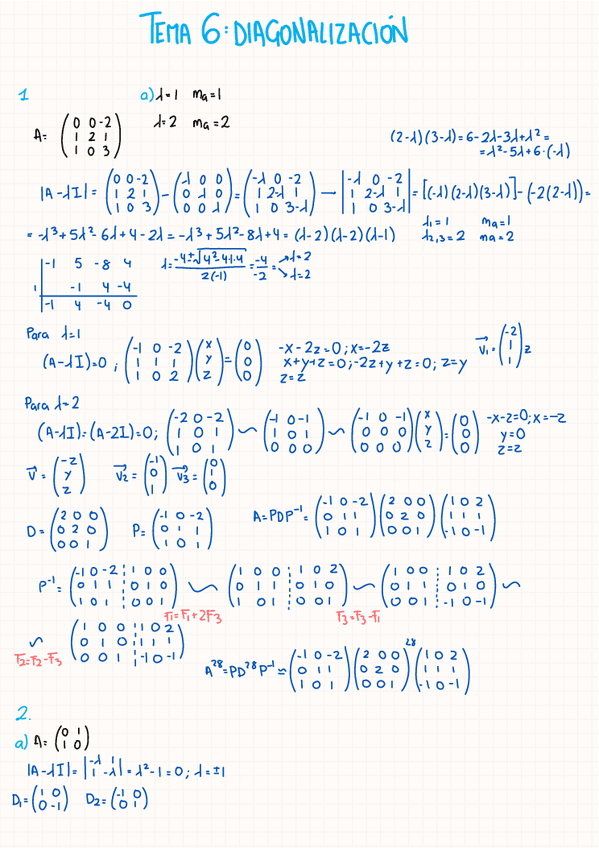 TEMA 6: DIAGONALIZACIÓN
1
a) λ=1 ma=1
λ=2 ma=2
A= (0 0 -2; 1 2 1; 1 0 3)
(2-λ)(3-λ)=6-2λ-3λ+λ²=
=λ²-5λ+6·(-λ)
|A-λI|= (0 0 -2; 1 2 1; 1 0 3) - (λ 0 0; 0 λ 0; 0 0 λ) = (-λ 0 -2; 1 2-λ 1; 1 0 3-λ) — |-λ 0 -2; 1 2-λ 1; 1 0 3-λ| = [(-λ)(2-λ)(3-λ)]-(-2(2-λ))=
= -λ³+5λ²-6λ+4-2λ = -λ³+5λ²-8λ+4 = (λ-2)(λ-2)(λ-1)
λ1=1 ma=1
λ2,3=2 ma=2
-1 5 -8 4
1 -1 4 -4
-1 4 -4 0
λ= -4±√4²-4·1·4 / 2(-1) = -4/-2 λ=2 λ=2
Para λ=1
(A-λI)=0; (-1 0 -2; 1 1 1; 1 0 2) (x; y; z) = (0; 0; 0)
-x-2z=0; x=-2z
x+y+z=0; -2z+y+z=0; z=y
z=z
V1= (-2; 1; 1) z
Para λ=2
(A-λI)=(A-2I)=0; (-2 0 -2; 1 0 1; 1 0 1) ~ (-1 0 -1; 1 0 1; 0 0 0) ~ (-1 0 -1; 0 0 0; 0 0 0) (x; y; z) = (0; 0; 0)
-x-z=0; x=-z
y=0
z=z
V= (-z; y; z) V2= (-1; 0; 1) V3= (0; 1; 0)
D= (2 0 0; 0 2 0; 0 0 1) P= (-1 0 -2; 0 1 1; 1 0 1) A=PDP⁻¹= (-1 0 -2; 0 1 1; 1 0 1) (2 0 0; 0 2 0; 0 0 1) (1 0 2; 1 1 1; -1 0 -1)
P⁻¹= (-1 0 -2 1 0 0; 0 1 1 0 1 0; 1 0 1 0 0 1) ~ (1 0 0 1 0 2; 0 1 1 0 1 0; 1 0 1 0 0 1) ~ (1 0 0 1 0 2; 0 1 1 0 1 0; 0 0 1 -1 0 -1) ~
F1=F1+2F3 F3=F3-F1
~ (1 0 0 1 0 2; 0 1 0 1 1 1; 0 0 1 -1 0 -1)
F2=F2-F3
A²⁸=PD²⁸P⁻¹= (-1 0 -2; 0 1 1; 1 0 1) (2 0 0; 0 2 0; 0 0 1)²⁸ (1 0 2; 1 1 1; -1 0 -1)
2.
a) A= (0 1; 1 0)
|A-λI|= |-λ 1; 1 -λ| = λ²-1=0; λ=±1
D1= (1 0; 0 -1) D2= (-1 0; 0 1)